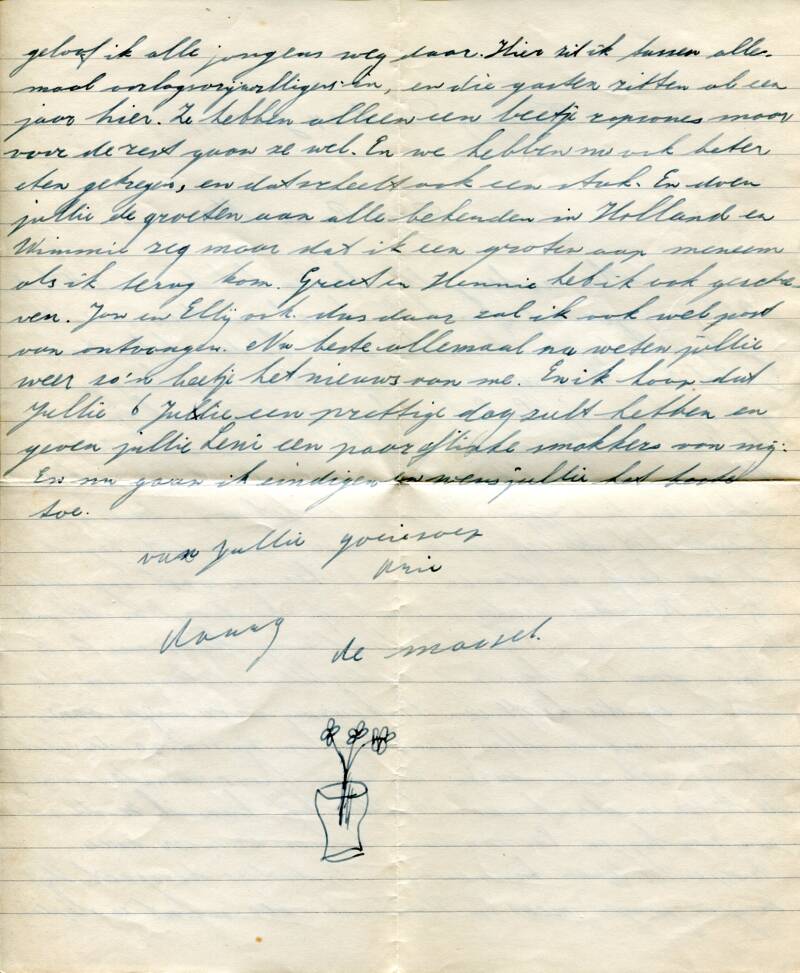 geloof ik alle jongens weg daar. Hier zit ik tussen alle-
maal oorlogsvrijwilligers in, en die gasten zitten al een
jaar hier. Ze hebben alleen een beetje kapsones maar
voor de rest gaan ze wel. En we hebben nu ook beter
eten gekregen, en dat scheelt ook een stuk. En doen
jullie de groeten aan alle bekenden in Holland en
Wimmie zeg maar dat ik een groten aap meneem
als ik terug kom. Greet en Hennie heb ik ook geschre
ven. Jan en Elly ook dus daar zal ik ook wel post
van ontvangen. Nu beste allemaal nu weten jullie
weer zo'n beetje het nieuws van me. En ik hoop dat
Jullie 6 Jullie een prettige dag zult hebben en
geven jullie Leni een paar flinke smakkers van mij.
En nu gaan ik eindigen en wens jullie het beste
toe.
van jullie
de